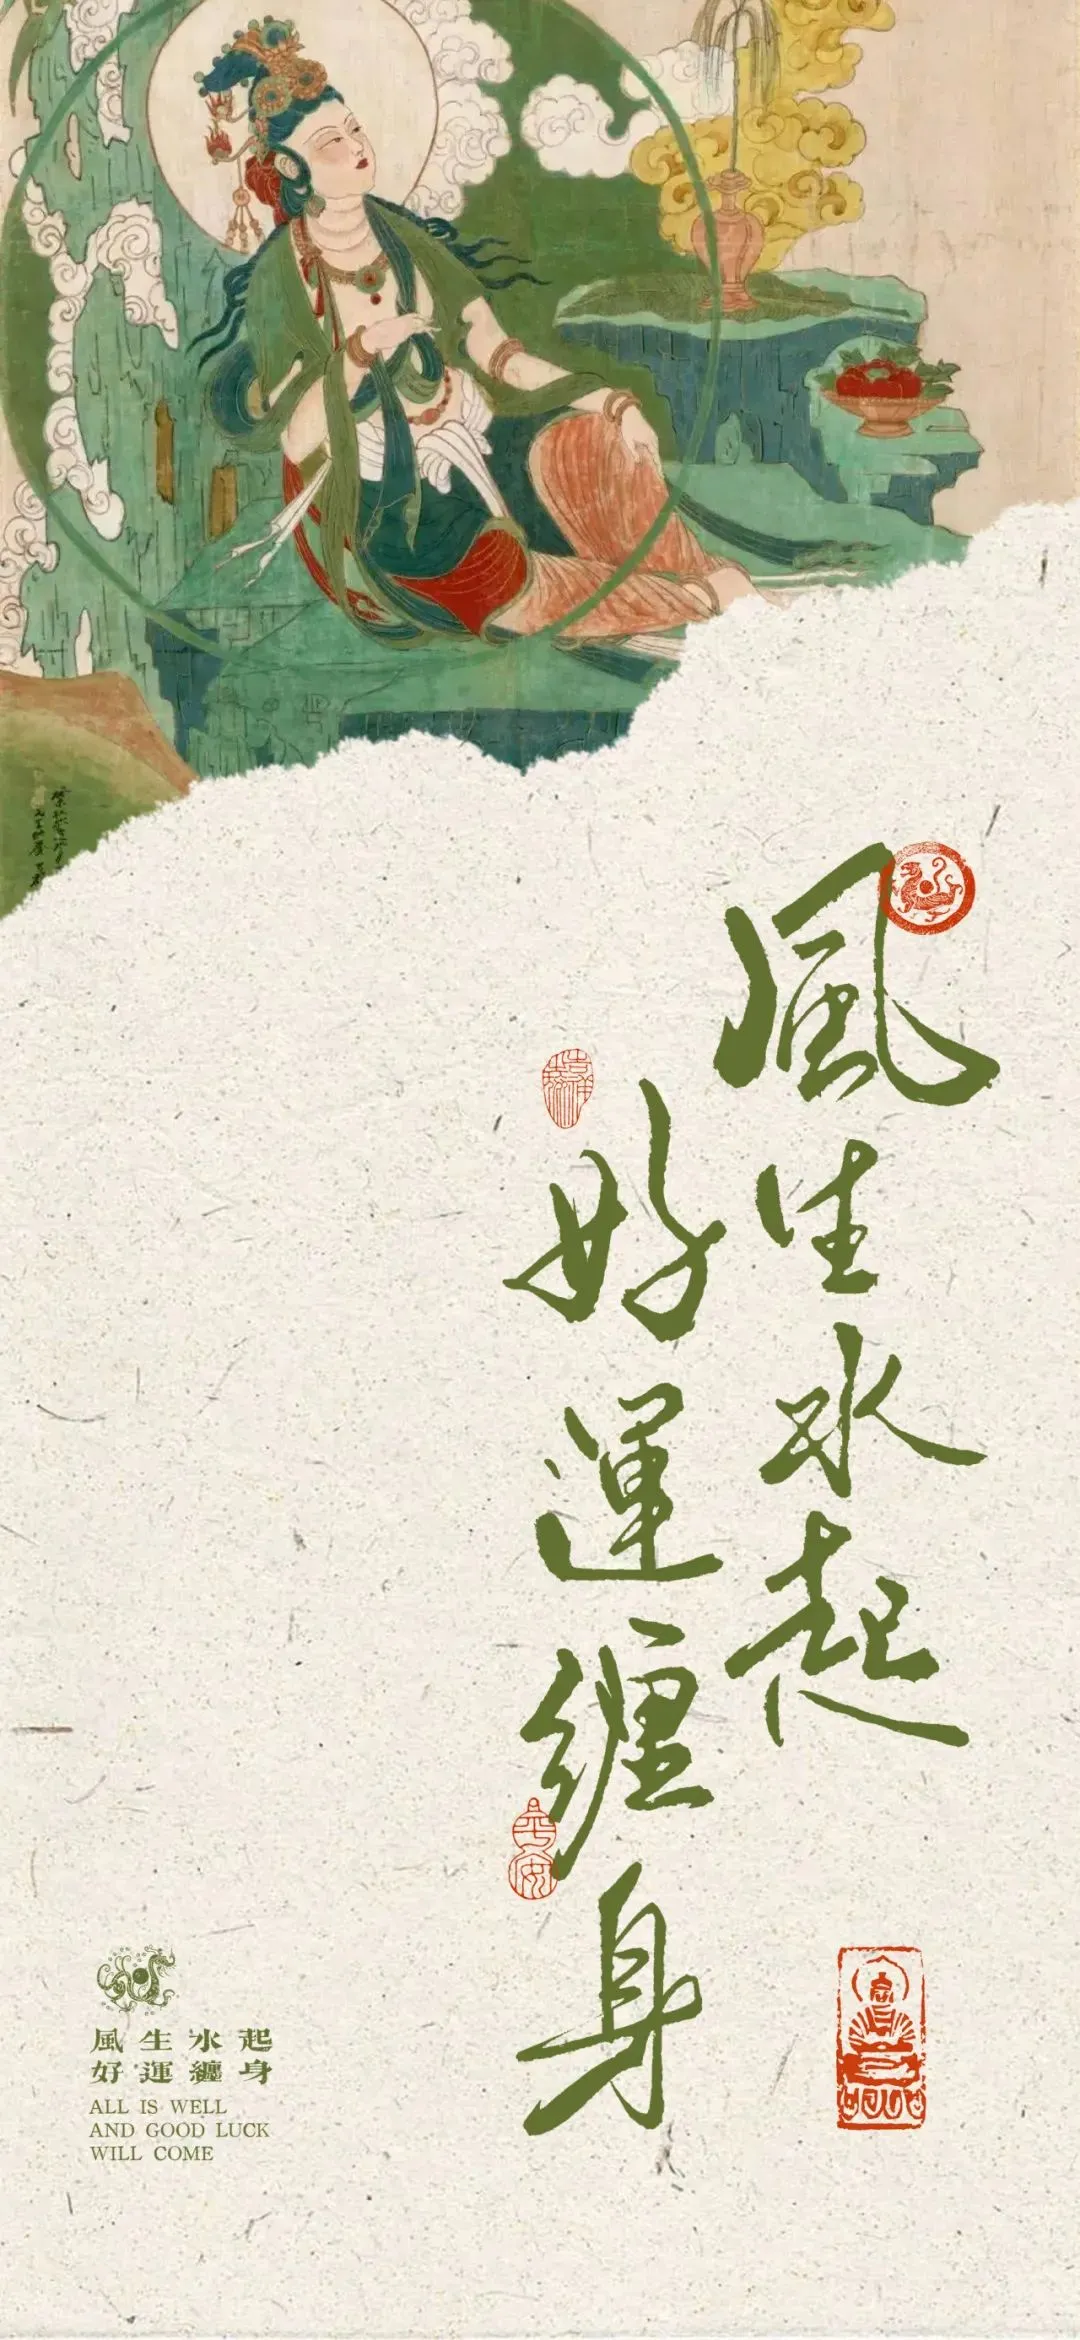 風生水起
好運纏身
吉祥
平安
風生水起
好運纏身
ALL IS WELL
AND GOOD LUCK
WILL COME